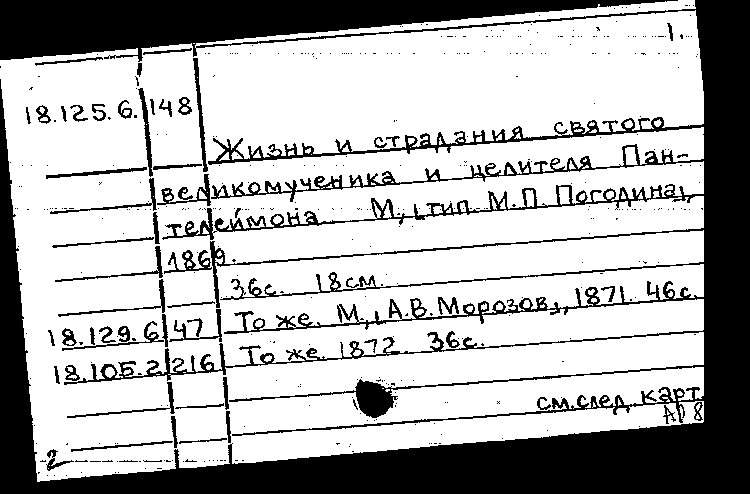 1.
18.125.6. 148
Жизнь и страдания святого
великомученика и целителя Пан-
телеймона. М., [тип. М.П. Погодина],
1869.
36с. 18см.
18.129.6. 47 То же. М., [А.В. Морозов], 1871. 46с.
18.105.2. 216 То же. 1872. 36с.
см. след. карт.
АР 8
2